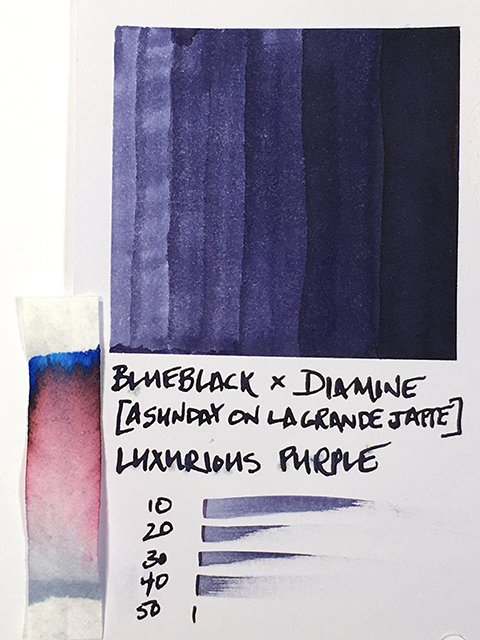 BLUEBLACK x DIAMINE
[A SUNDAY ON LA GRANDE JATTE]
LUXURIOUS PURPLE
10
20
30
40
50